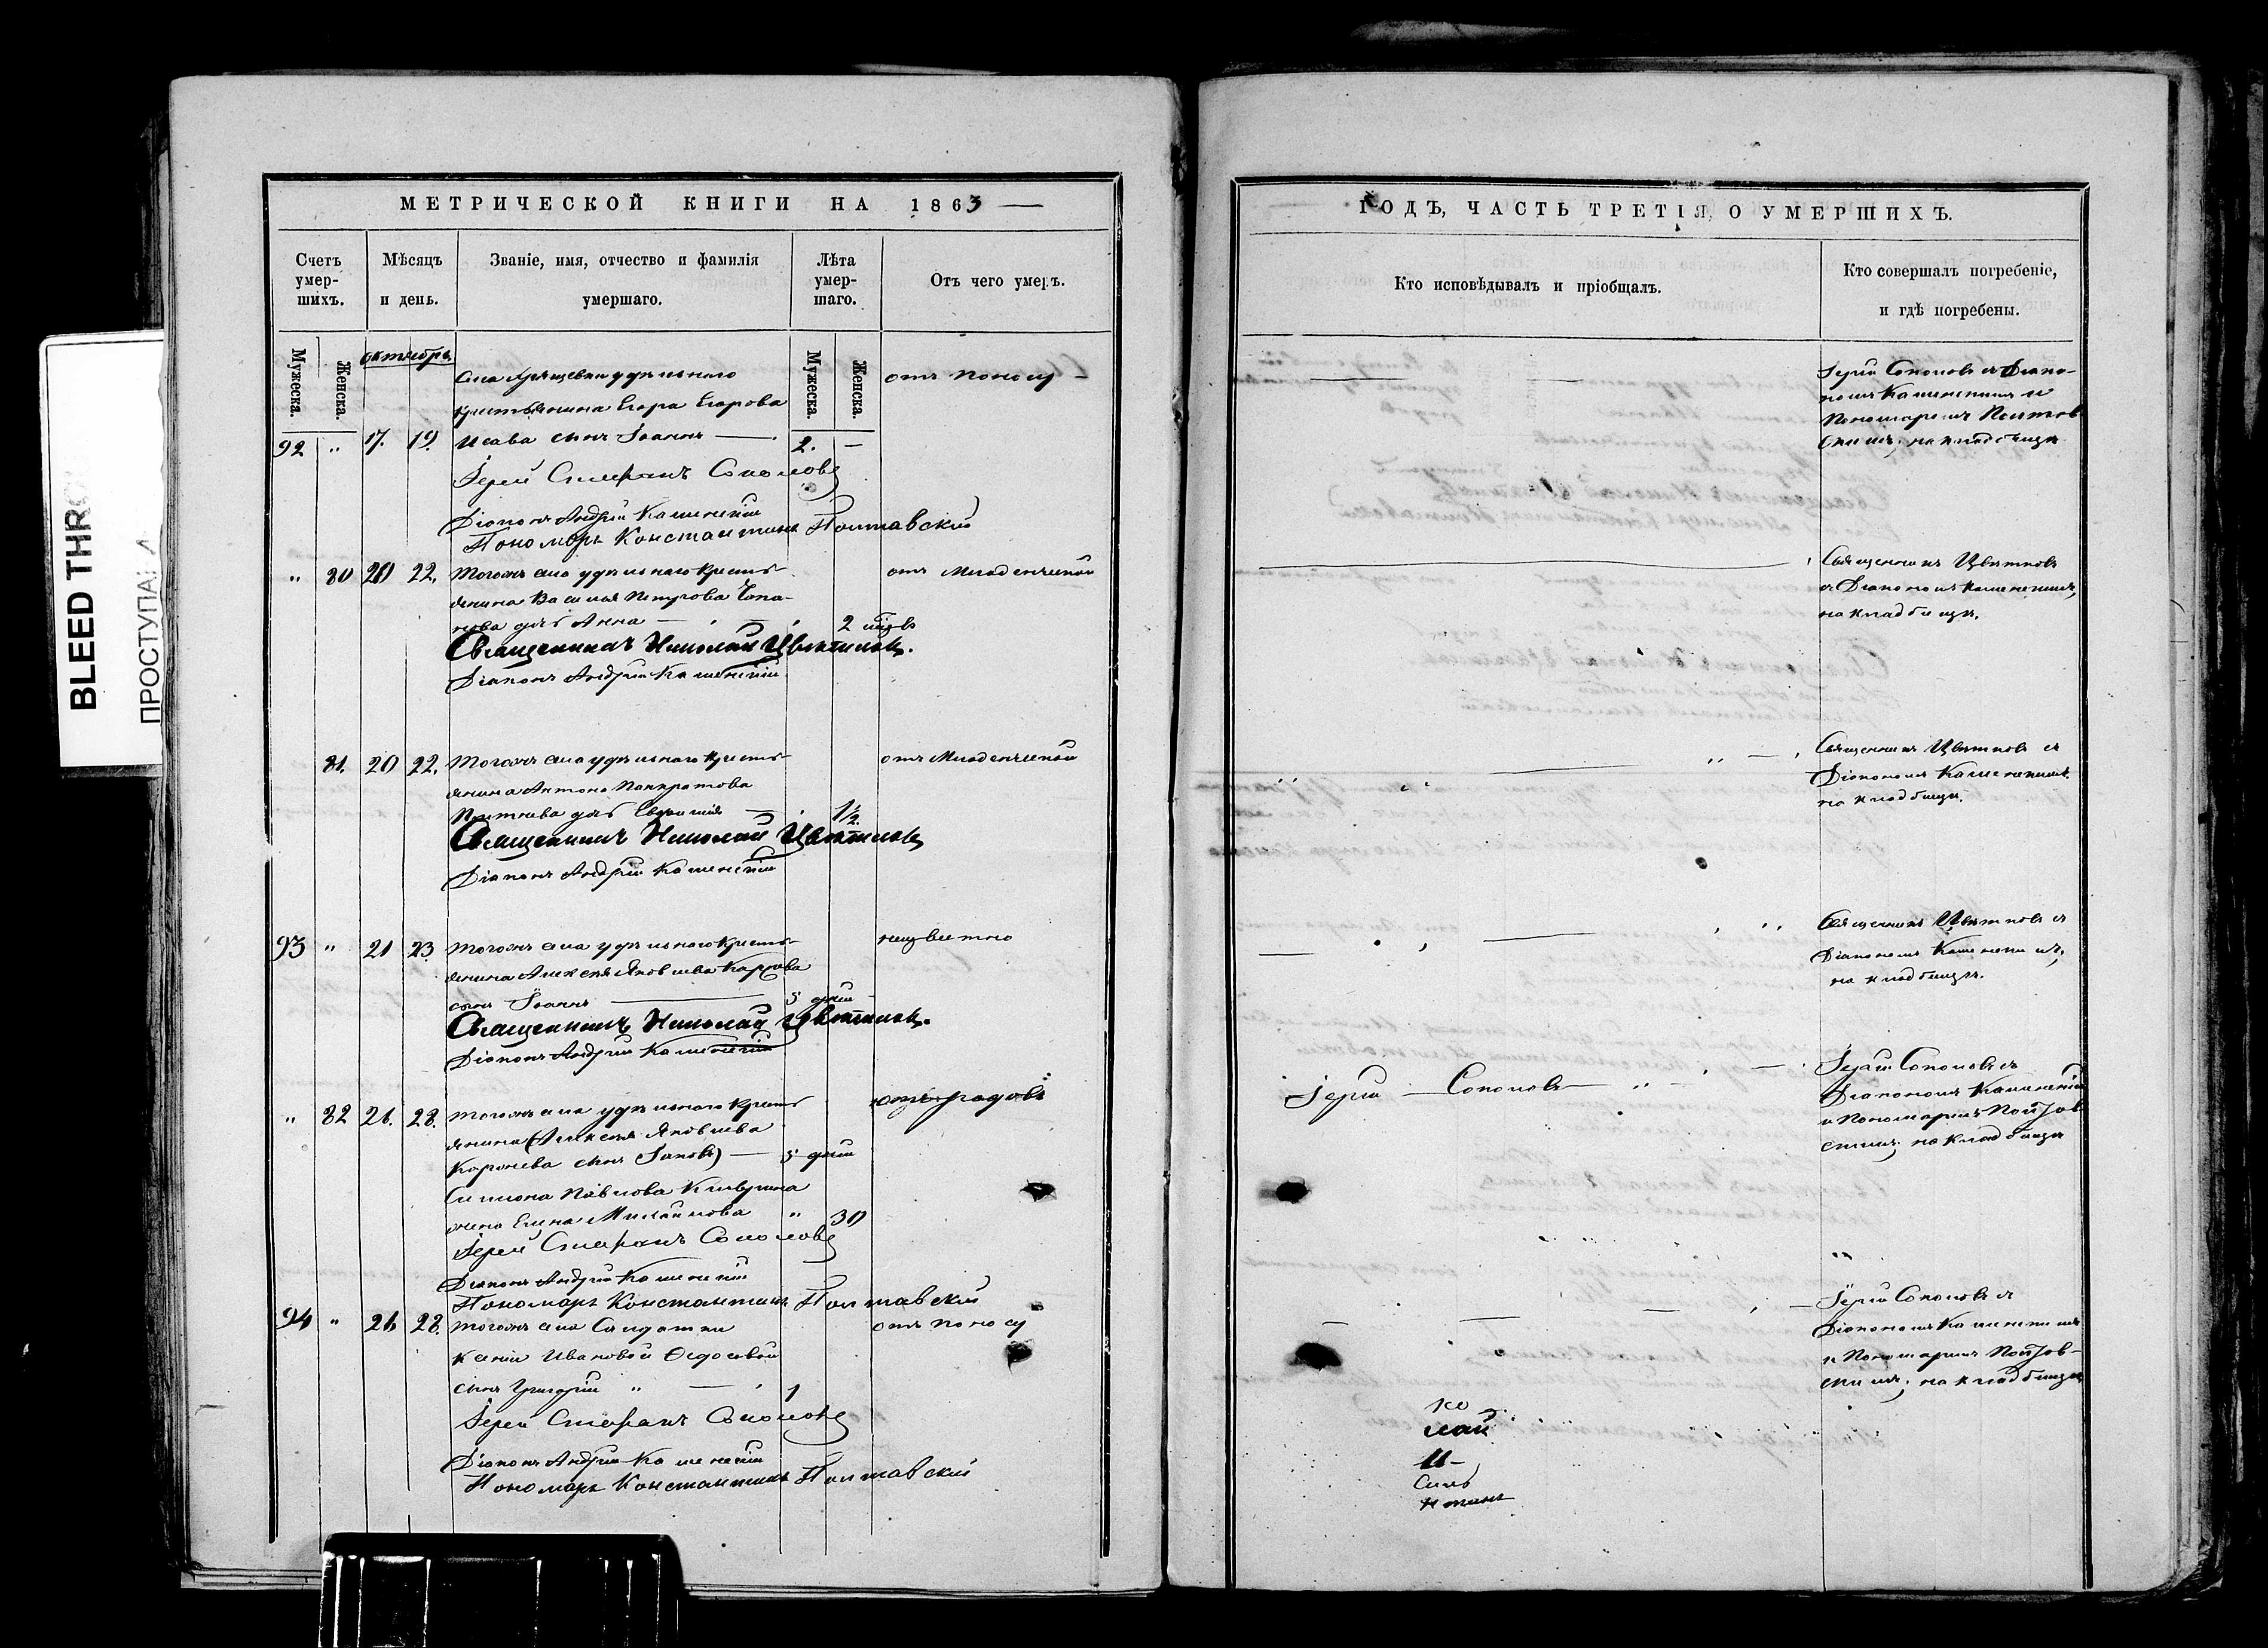 МЕТРИЧЕСКОЙ КНИГИ НА 1863
Счетъ умер-шихъ.
Мѣсяцъ и день.
Званіе, имя, отчество и фамилія умершаго.
Лѣта умер-шаго.
Отъ чего умеръ.
Мужеска.
Женска.
октябрь
Мужеска.
Женска.
села удѣльнаго отъ поносу
крестьянина Егора Егорова
92 " 17. 19. Исава сынъ Іоаннъ 2. —
Іерей Стефанъ Соколовъ
Діаконъ Андрей Каменскій
Пономарь Константинъ Полтавскій
" 80 20 22. тогожъ села удѣльнаго кресть- отъ младенческой
янина Василья Петрова
нова дочь Анна 2 мѣсв
Священникъ Николай Цвѣтковъ.
Діаконъ Андрей Каменскій
81. 20 22. тогожъ села удѣльнаго кресть- отъ младенческой
янина Антона Панкратова
дочь Евфимія 1½
Священникъ Николай Цвѣтковъ
Діаконъ Андрей Каменскій
93 " 21 23. тогожъ села удѣльнаго кресть- неизвѣстно
янина Алексѣя Яковлева
сынъ Іоаннъ 5 дней
Священникъ Николай Цвѣтковъ.
Діаконъ Андрей Каменскій
" 82 26. 28. тогожъ села удѣльнаго кресть- отъ родовъ
янина (Алексѣя Яковлева
сынъ Іаковъ) — 5 дней
Симиона Павлова
жена Елена Михайлова " 30
Іерей Стефанъ Соколовъ
Діаконъ Андрей Каменскій
Пономарь Константинъ Полтавскій
94 " 26 28. тогожъ села Солдатки отъ поносу
Ксеніи Ивановой Ѳедосовой
сынъ Григорій " 1
Іерей Стефанъ Соколовъ
Діаконъ Андрей Каменскій
Пономарь Константинъ Полтавскій
ГОДЪ, ЧАСТЬ ТРЕТІЯ, О УМЕРШИХЪ.
Кто исповѣдывалъ и пріобщалъ.
Кто совершалъ погребеніе,
и гдѣ погребены.
Іерей Соколовъ съ Діако-
номъ Каменскимъ и
Пономаремъ Полтав
скимъ, на кладбищѣ
Священникъ Цвѣтковъ
съ Діакономъ Каменскимъ,
на кладбищѣ.
Священникъ Цвѣтковъ съ
Діакономъ Каменскимъ.
на кладбищѣ.
Священникъ Цвѣтковъ съ
Діакономъ Каменскимъ,
на кладбищѣ.
Іерей Соколовъ Іерей Соколовъ съ
Діакономъ Каменскимъ
и Пономаремъ Полтав
скимъ, на кладбищѣ
Іерей Соколовъ съ
Діакономъ Каменскимъ
и Пономаремъ Полтав-
скимъ, на кладбищѣ
ко
лай
Ц-
нтинъ
BLEED THRO
ПРОСТУПА